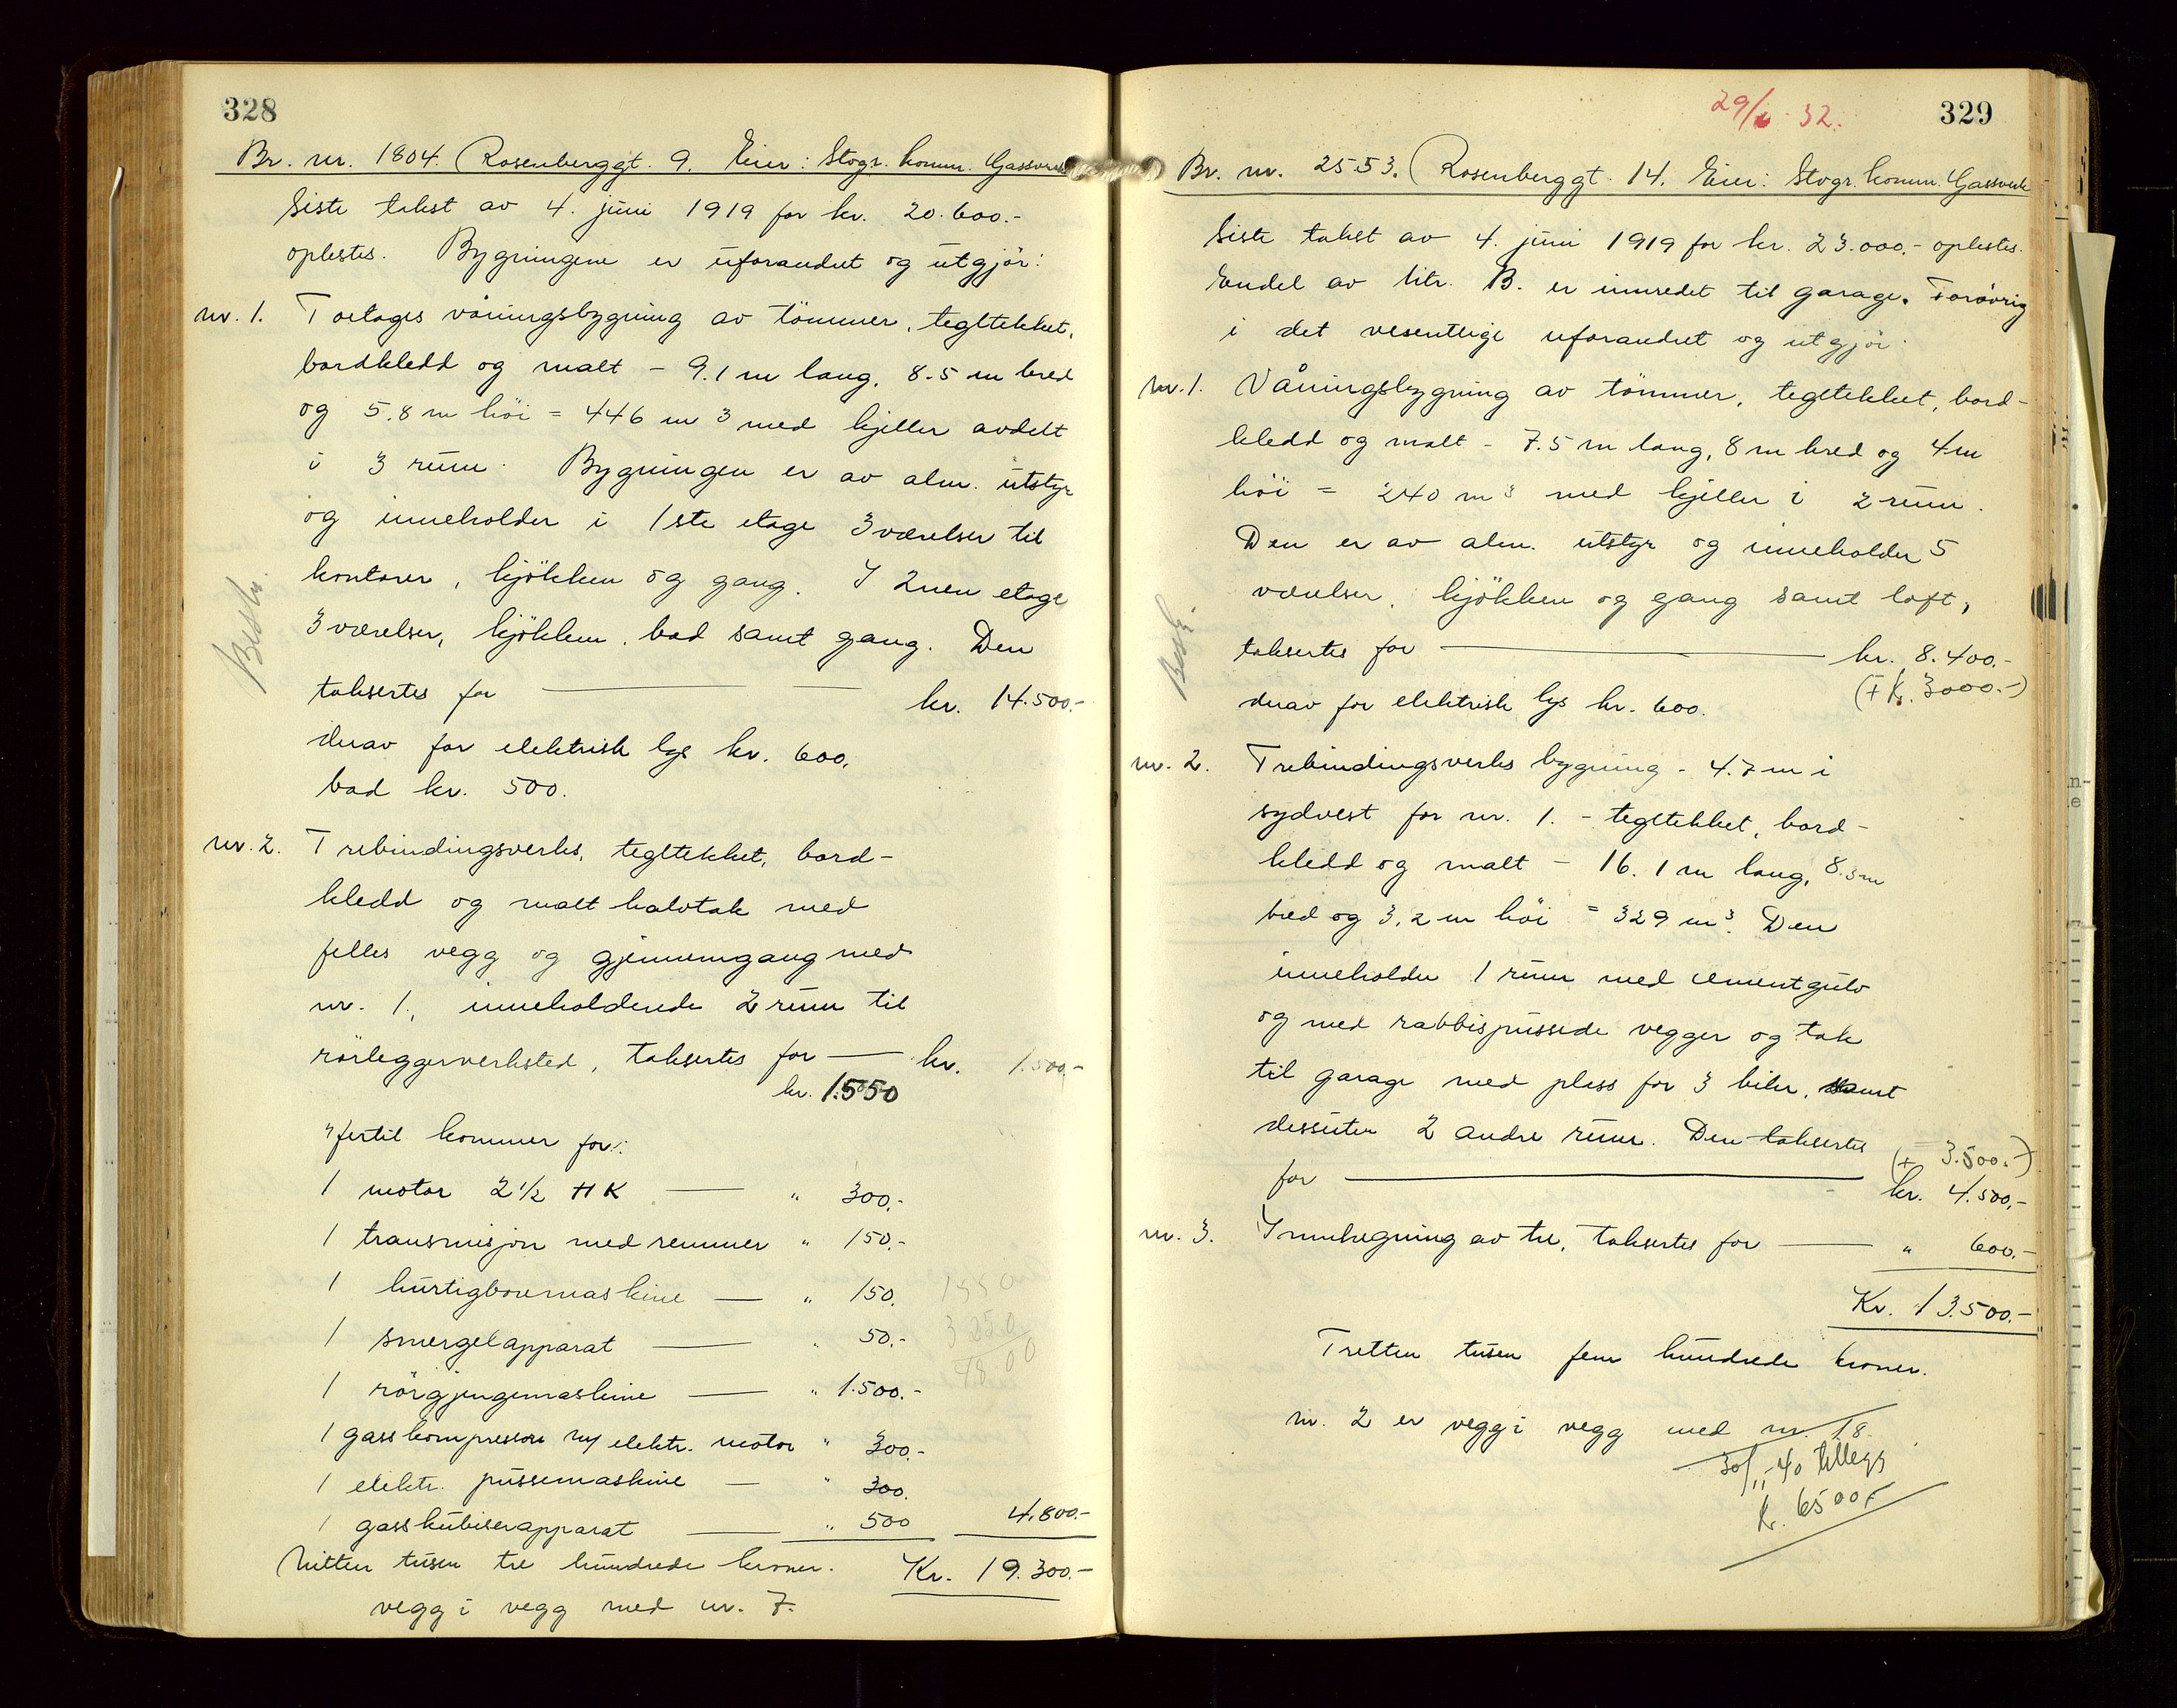 328
Br. nr. 1804. (Rosenberggt. 9. Eier: Stvgr. komm. Gassverk
Siste takst av 4. juni 1919 for kr. 20.600.-
oplestes. Bygningene er uforandret og utgjör:
nr. 1. Toetages våningsbygning av tömmer, tegltekket,
bordkledd og malt - 9.1 m lang, 8.5 m bred
og 5.8 m höi = 446 m3 med kjeller avdelt
i 3 rum. Bygningen er av alm. utstyr
og inneholder i 1ste etage 3 værelser til
kontorer, kjökken og gang. I 2nen etage
3 værelser, kjökken, bad samt gang. Den
taksertes for — kr. 14.500.-
derav for elektrisk lys kr. 600,
bad kr. 500.
nr. 2. Trebindingsverks, tegltekket, bord-
kledd og malt halvtak med
felles vegg og gjennemgang med
nr. 1., inneholdende 2 rum til
rörleggerverksted, taksertes for — kr. 1.500.-
kr. 1.550
hertil kommer for:
1 motor 2 1/2 HK — " 300.-
1 transmisjon med remmer " 150.-
1 hurtigboremaskine — " 150. 1550
1 smergelapparat — " 50.- 3250
1 rörgjengemaskine — " 1.500.- 4800
1 gasskompressor m/ elektr. motor " 300.-
1 elektr. pussemaskine — " 300.
1 gasskubiserapparat — " 500 4.800.-
Nitten tusen tre hundrede kroner. Kr. 19.300.-
vegg i vegg med nr. 7.
29/6 32. 329
Br. nr. 2553. (Rosenberggt. 14. Eier: Stvgr. komm. Gassverk
Siste takst av 4. juni 1919 for kr. 23.000.- oplestes.
Endel av litr. B. er innredet til garage. Forövrig
i det vesentlige uforandret og utgjör:
nr. 1. Våningsbygning av tömmer, tegltekket, bord-
kledd og malt - 7.5 m lang, 8 m bred og 4 m
höi = 240 m3 med kjeller i 2 rum.
Den er av alm. utstyr og inneholder 5
værelser, kjökken og gang samt loft,
taksertes for — kr. 8.400.-
(+ k. 3000.-)
derav for elektrisk lys kr. 600.
nr. 2. Trebindingsverks bygning - 4.7 m i
sydvest for nr. 1. - tegltekket, bord-
kledd og malt - 16.1 m lang, 8.3 m
bred og 3,2 m höi = 329 m3. Den
inneholder 1 rum med cementgulv
og med rabbispussede vegger og tak
til garage med plass for 3 biler, samt
dessuten 2 andre rum. Den taksertes (+ 3.500.-)
for — kr. 4.500.-
nr. 3. Innhegning av tre, taksertes for — " 600.-
Kr. 13.500.-
Tretten tusen fem hundrede kroner.
nr. 2 er vegg i vegg med nr. 18.
30/11-40 tillegg
k. 6500.-